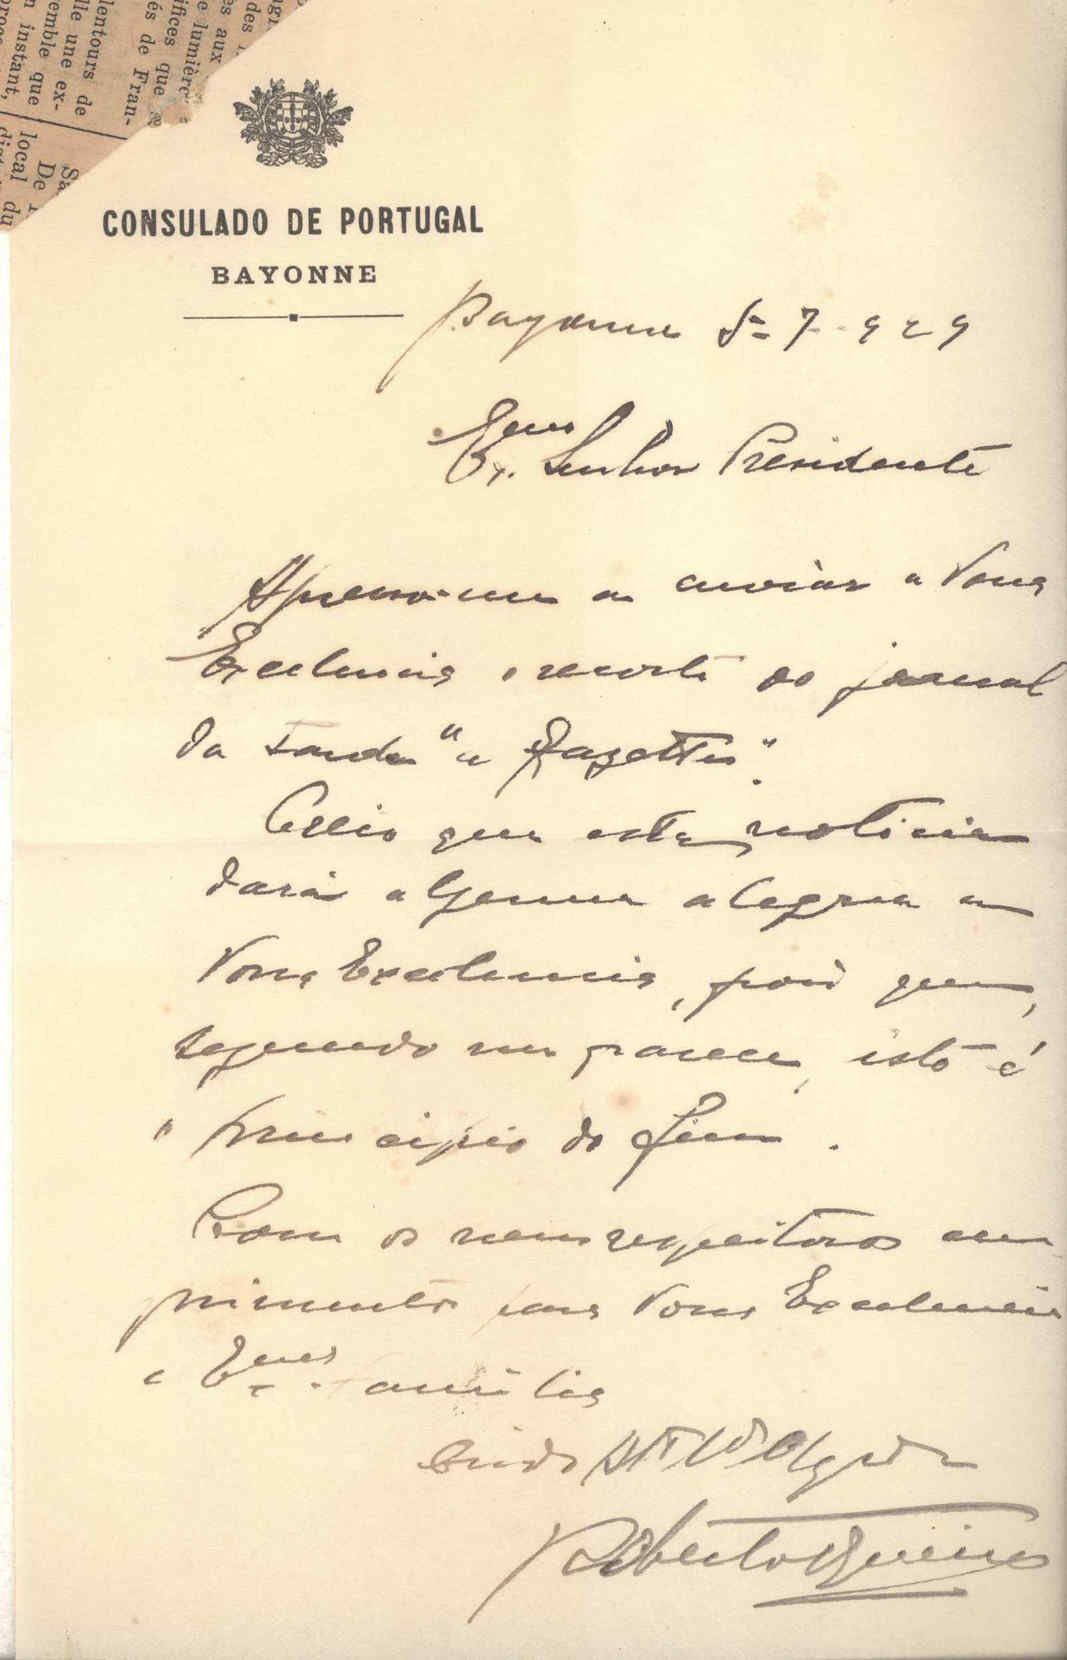 agr
des
es aux
e lumière
ifices que
és de Fran-
lentours de
lle une ex-
emble que
n instant,
De
local
du
CONSULADO DE PORTUGAL
BAYONNE
Bayonne 5-7-929
Exmo Senhor Presidente
Apresso-me a enviar a Vossa
Excelencia o recorte do jornal
da tarde "a Gazette".
Creio que esta noticia
dará alguma alegria a
Vossa Excelencia, pois que,
segundo me parece, isto é
o principio do fim.
Com os meus respeitosos cum
primentos para Vossa Excelencia
e Exma familia
Criado Att Vdor Obgado
Roberto